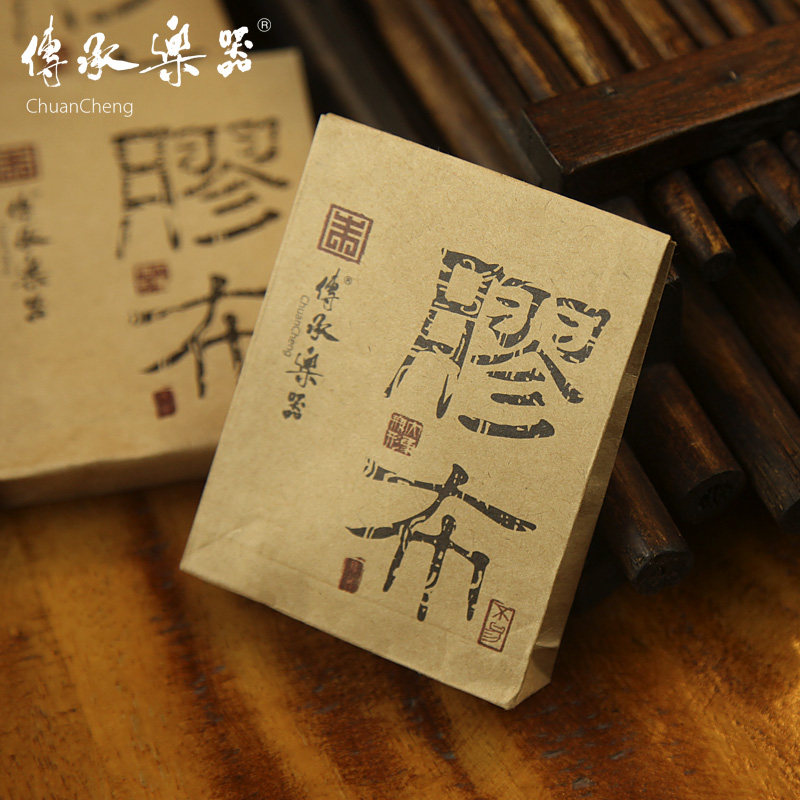 傳承樂器®
ChuanCheng
膠布
傳承樂器®
ChuanCheng
膠布
傳承樂器